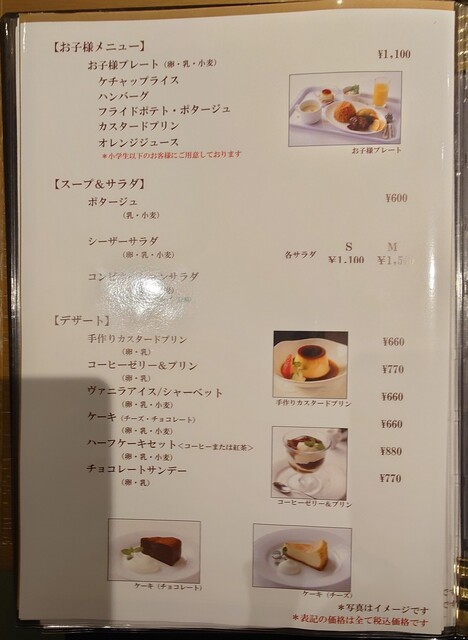 【お子様メニュー】
¥1,100
お子様プレート（卵・乳・小麦）
ケチャップライス
ハンバーグ
フライドポテト・ポタージュ
カスタードプリン
オレンジジュース
＊小学生以下のお客様にご用意しております
お子様プレート
【スープ＆サラダ】
ポタージュ ¥600
（乳・小麦）
シーザーサラダ
（卵・乳・小麦）
各サラダ S M
¥1,100
サラダ
【デザート】
手作りカスタードプリン ¥660
（卵・乳）
コーヒーゼリー＆プリン ¥770
（卵・乳）
ヴァニラアイス/シャーベット ¥660
（卵・乳・小麦）
ケーキ（チーズ・チョコレート） ¥660
（卵・乳・小麦）
ハーフケーキセット＜コーヒーまたは紅茶＞ ¥880
（卵・乳・小麦）
チョコレートサンデー ¥770
（卵・乳）
手作りカスタードプリン
コーヒーゼリー＆プリン
ケーキ（チョコレート）
ケーキ（チーズ）
＊写真はイメージです
＊表記の価格は全て税込価格です